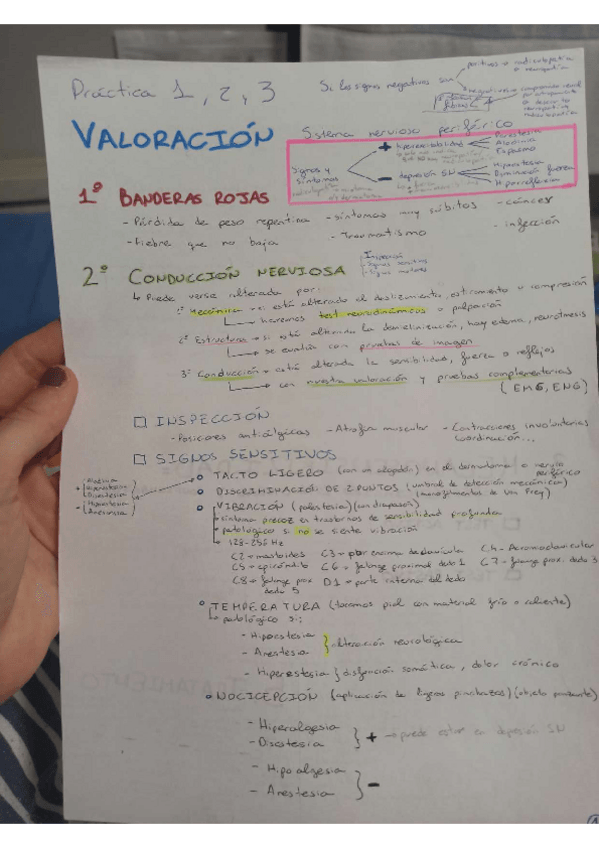 Práctica 1, 2, 3
Si los signos negativos son
positivos → radiculopatía o neuropatía
VALORACIÓN
Sistema nervioso periférico
Signos y síntomas
+ hiperexcitabilidad
Parestesia
Alodinia
Espasmo
- depresión SN
Hipoestesia
Disminución fuerza
Hiporreflexia
1º BANDERAS ROJAS
- Pérdida de peso repentina - síntomas muy súbitos - cáncer
- fiebre que no baja - Traumatismo - infección
2º CONDUCCIÓN NERVIOSA
Inspección
Signos sensitivos
Signos motores
↳ Puede verse alterada por:
1º Mecánica → si está alterado el deslizamiento, estiramiento o compresión
↳ haremos test neurodinámicos o palpación
2º Estructura → si está alterada la desmielinización, hay edema, neurotmesis
↳ se evalúa con pruebas de imagen
3º Conducción → está alterada la sensibilidad, fuerza o reflejos
↳ con nuestra valoración y pruebas complementarias
(EMG, ENG)
□ INSPECCIÓN
- Posiciones antiálgicas - Atrofia muscular - Contracciones involuntarias
coordinación...
□ SIGNOS SENSITIVOS
Alodinia
+ Hiperestesia
Disestesia
- Hipoestesia
Anestesia
○ TACTO LIGERO (con un algodón) en el dermatoma o nervio periférico
○ DISCRIMINACIÓN DE 2 PUNTOS (umbral de detección mecánica)
(monofilamentos de Von Frey)
○ VIBRACIÓN (palestesia) (con diapasón)
síntoma precoz en trastornos de sensibilidad profunda
patológico si no se siente vibración
128-256 Hz
C2 → mastoides C3 → por encima de clavícula C4 → Acromioclavicular
C5 → epicóndilo C6 → falange proximal dedo 1 C7 → falange prox. dedo 3
C8 → falange prox dedo 5 D1 → parte interna del codo
○ TEMPERATURA (tocamos piel con material frío o caliente)
↳ patológico si:
- Hipoestesia
- Anestesia } alteración neurológica
- Hiperestesia } disfunción somática, dolor crónico
○ NOCICEPCIÓN (aplicación de ligeros pinchazos) (objeto punzante)
- Hiperalgesia
- Disestesia } + → puede estar en depresión SN
- Hipoalgesia
- Anestesia } -